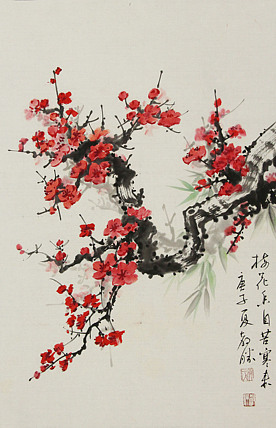 梅花香自苦寒来
庚子夏